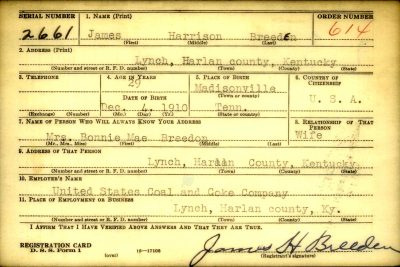 SERIAL NUMBER 1. NAME (Print) ORDER NUMBER
2661 James Harrison Breeden 614
(First) (Middle) (Last)
2. ADDRESS (Print)
Lynch, Harlan county, Kentucky
(Number and street or R. F. D. number) (Town) (County) (State)
3. TELEPHONE 4. AGE IN YEARS 5. PLACE OF BIRTH 6. COUNTRY OF CITIZENSHIP
29 Madisonville
DATE OF BIRTH (Town or county)
Dec. 4, 1910 Tenn. U. S. A.
(Exchange) (No.) (Mo.) (Day) (Yr.) (State or country)
7. NAME OF PERSON WHO WILL ALWAYS KNOW YOUR ADDRESS 8. RELATIONSHIP OF THAT PERSON
Mrs. Bonnie Mae Breedon Wife
(Mr., Mrs., Miss) (First) (Middle) (Last)
9. ADDRESS OF THAT PERSON
Lynch, Harlan County, Kentucky
(Number and street or R. F. D. number) (Town) (County) (State)
10. EMPLOYER'S NAME
United States Coal and Coke Company
11. PLACE OF EMPLOYMENT OR BUSINESS
Lynch, Harlan county, Ky.
(Number and street or R. F. D. number) (Town) (County) (State)
I AFFIRM THAT I HAVE VERIFIED ABOVE ANSWERS AND THAT THEY ARE TRUE.
REGISTRATION CARD
D. S. S. Form 1 (over) 16—17105 James H Breeden
(Registrant's signature)